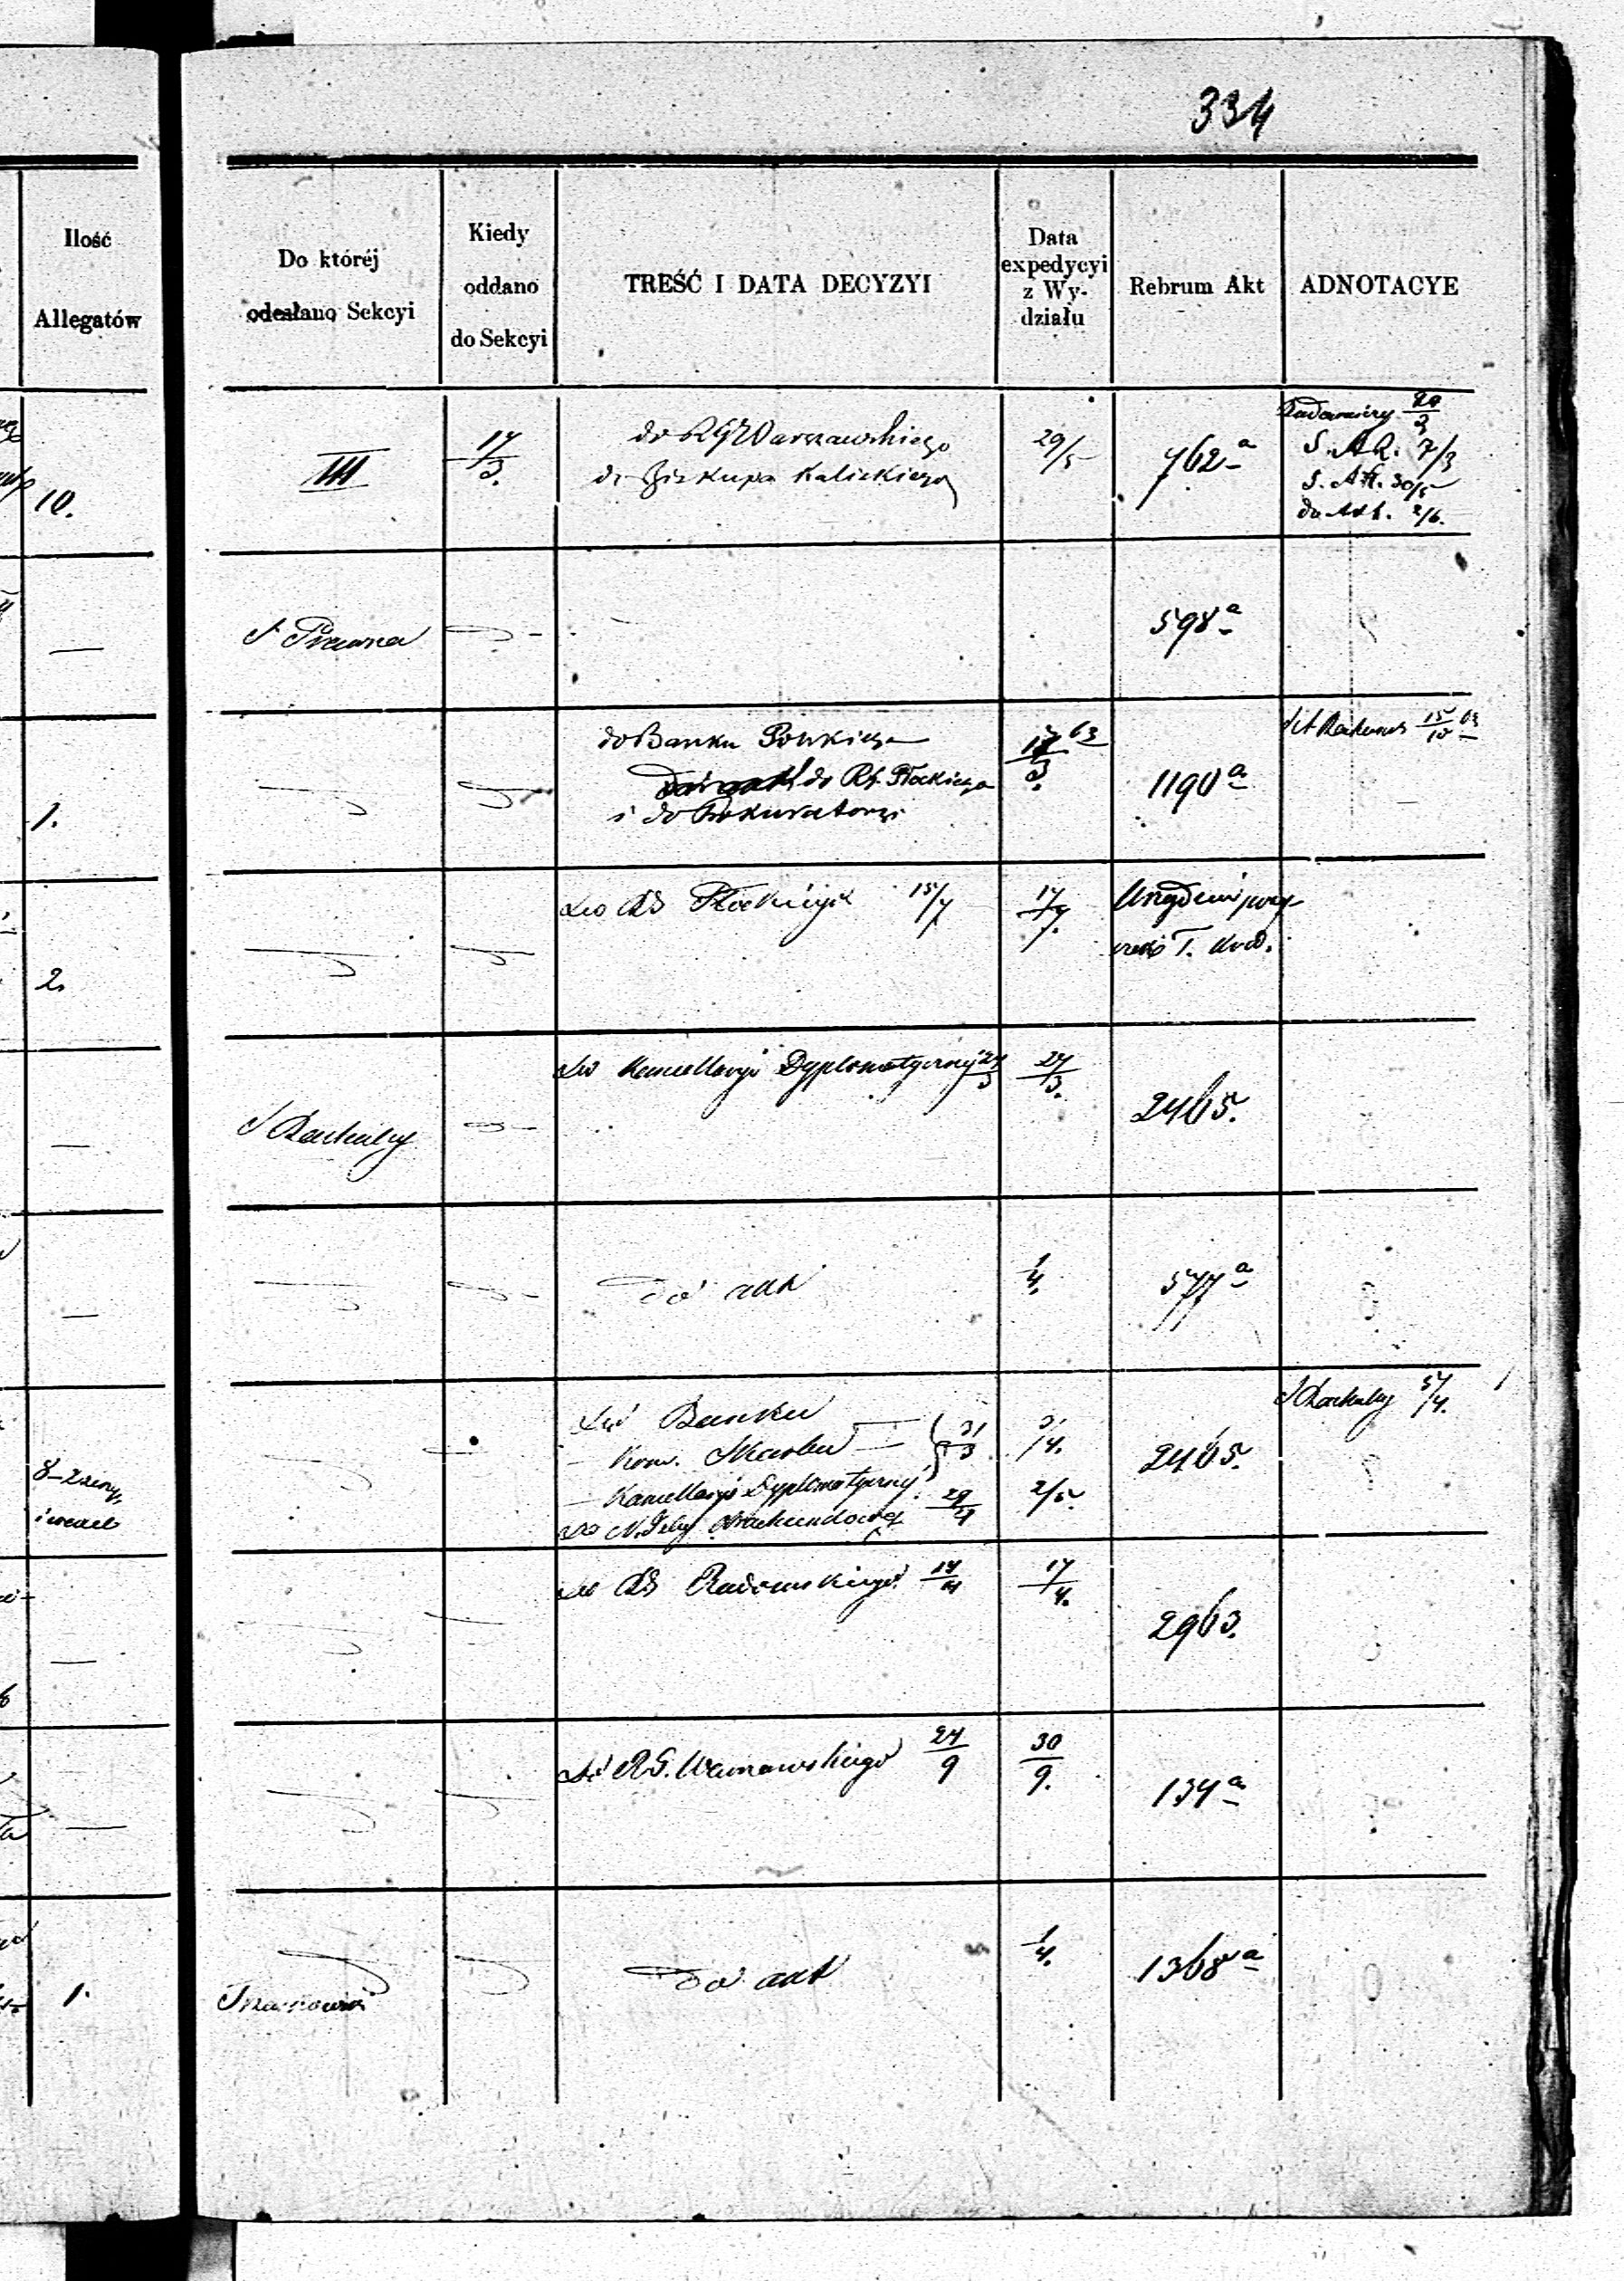 334
Ilość
Allegatów
Do któréj
odesłano Sekcyi
Kiedy
oddano
do Sekcyi
TREŚĆ I DATA DECYZYI
Data
expedycyi
z Wy-
działu
Rebrum Akt
ADNOTACYE
10.
III
17/3.
do RGWarszawskiego
do Biskupa Kalickiego
29/5
762 a
20/3
S. A R. 7/3
S. A R. 30/5
do Akt. 2/6.
S Prawna
598 a
1.
do Banku Polskiego
do RG. Płockiego
i do Prokuratoryi
63
1190 a
15/10 63
2.
do RG Płockiego 15/7
17/7.
T. Kred.
S Rachuby
do Kancellaryi Dyplomatycznej 27/3
27/3.
2465.
do akt
1/4.
577 a
i wexel
do Banku
Kom. Skarbu 31/3
Kancellaryi Dyplomatycznej
do N. Izby Obrachunkowej 29/4
3/4.
2/5.
2465.
S Rachuby 5/4.
do RG Radomskiego 14/4
17/4.
2963.
do RG. Warszawskiego 24/9
30/9.
134 a
1.
do akt
1/4.
1368 a